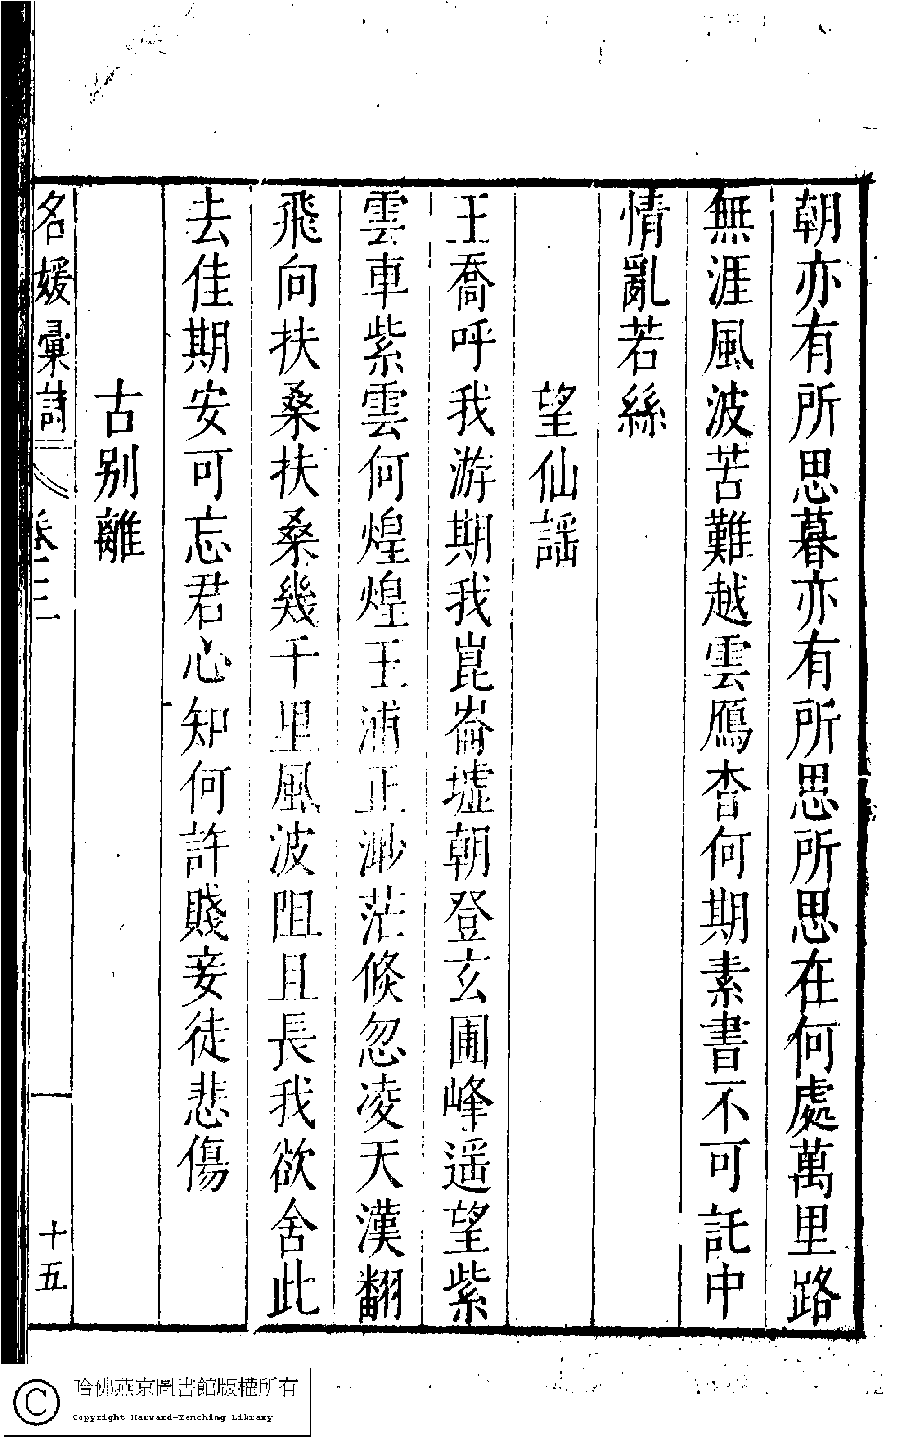 朝亦有所思暮亦有所思所思在何處萬里路
無涯風波苦難越雲鴈杳何期素書不可託中
情亂若絲
望仙謡
王喬呼我游期我崑崙墟朝登玄圃峰遥望紫
雲車紫雲何煌煌玉浦正渺茫倐忽凌天漢翻
飛向扶桑扶桑幾千里風波阻且長我欲舍此
去佳期安可忘君心知何許賤妾徒悲傷
古别離
名媛彙詩 卷三 十五
哈佛燕京圖書館版權所有
Copyright Harvard-Yenching Library